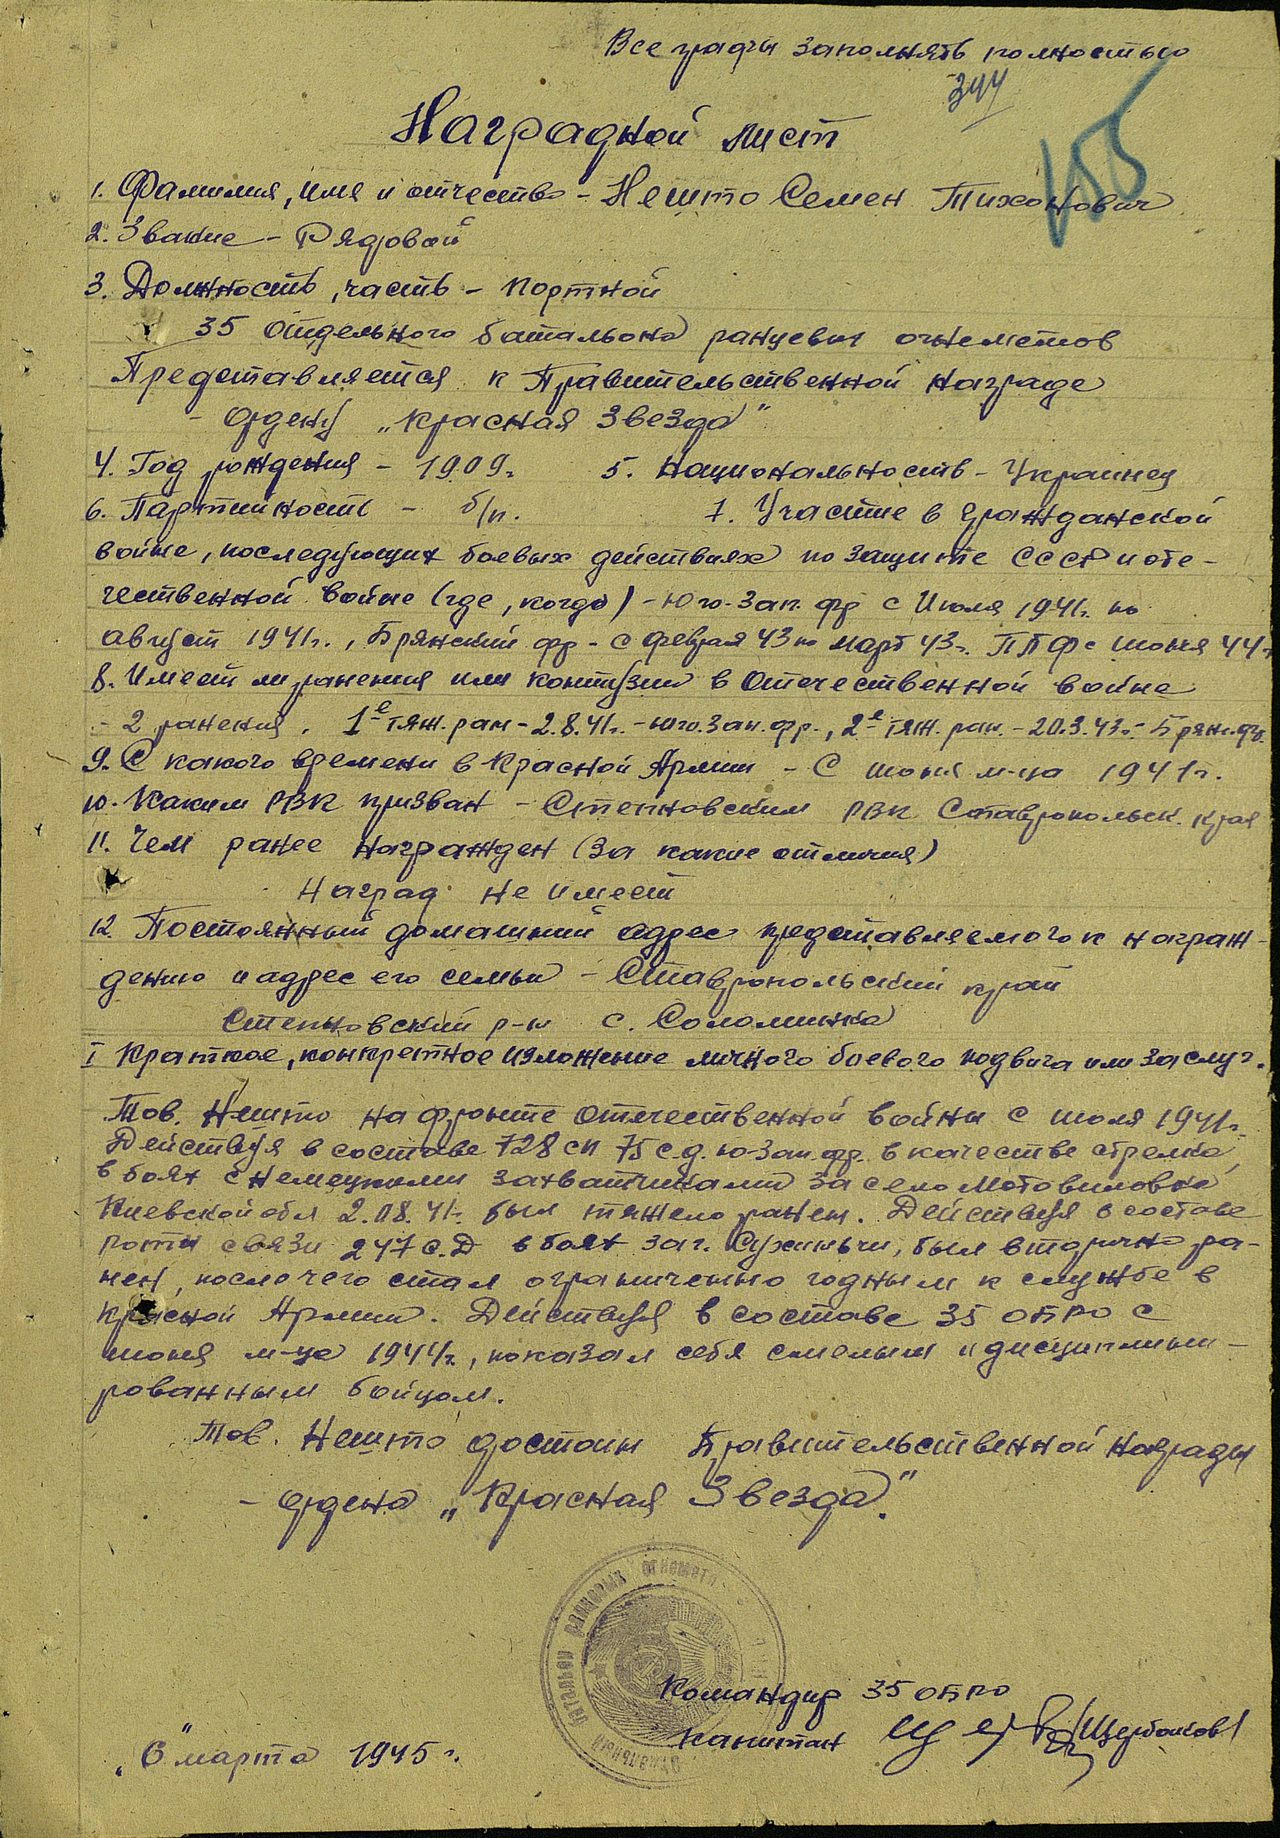 Все графы заполнять полностью
344
155
Наградной лист
1. Фамилия, имя и отчество - Нешто Семен Тихонович
2. Звание - Рядовой
3. Должность, часть - портной
35 отдельного батальона ранцевых огнеметов
Представляется к Правительственной награде
- ордену „Красная Звезда"
4. Год рождения - 1909г. 5. Национальность - Украинец
6. Партийность - б/п. 7. Участие в гражданской
войне, последующих боевых действиях по защите СССР и оте-
чественной войне (где, когда) - Юго-Зап. фр с Июля 1941г. по
август 1941г., Брянский фр - с февраля 43 по март 43г. ППФ с июня 44г
8. Имеет ли ранения или контузии в Отечественной войне
- 2 ранения. 1е тяж. ран - 2.8.41г. - юго.Зап. фр., 2е тяж. ран. - 20.3.43г. - Брян. фр.
9. С какого времени в Красной Армии - С июня м-ца 1941г.
10. Каким РВК призван - Степновским РВК Ставропольск. края
11. Чем ранее награжден (за какие отличия)
Наград не имеет
12. Постоянный домашний адрес представляемого к награж-
дению и адрес его семьи - Ставропольский край
Степновский р-н с. Соломинка
I Краткое, конкретное изложение личного боевого подвига или заслуг.
Тов. Нешто на фронте отечественной войны с июля 1941г.
Действуя в составе 728 сп 75 с.д. ю-зап. фр. в качестве стрелка,
в боях с немецкими захватчиками за село Мотовиловка
Киевской обл 2.08.41г. был тяжело ранен. Действуя в составе
роты связи 247 с.д в боях за г. Сухиничи, был вторично ра-
нен, после чего стал ограниченно годным к службе в
Красной Армии. Действуя в составе 35 ОБРО с
июня м-ца 1944г., показал себя смелым и дисциплини-
рованным бойцом.
Тов. Нешто достоин Правительственной награды
- ордена „Красная Звезда".
отдельный батальон ранцевых огнемет
Командир 35 ОБРО
капитан (Щербаков)
„6" марта 1945г.